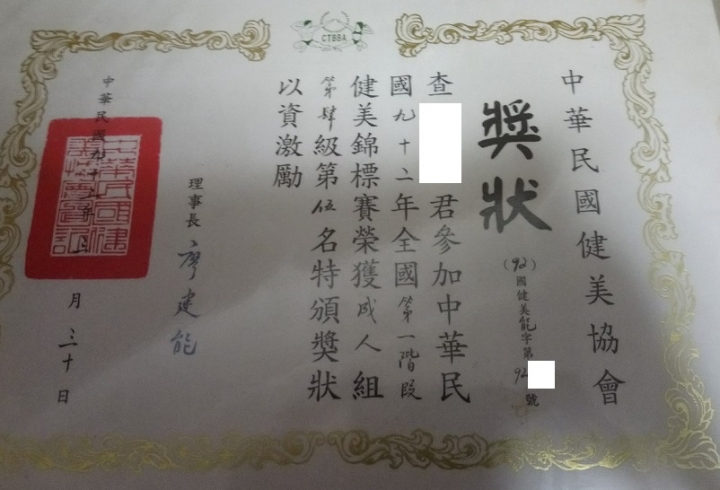 CTBBA
中華民國健美協會
獎狀
(92)國健美能字第92 號
查 君參加中華民
國九十二年全國第一階段
健美錦標賽榮獲成人組
第肆級第伍名特頒獎狀
以資激勵
理事長 廖建能
中華民國九十二年三月三十日